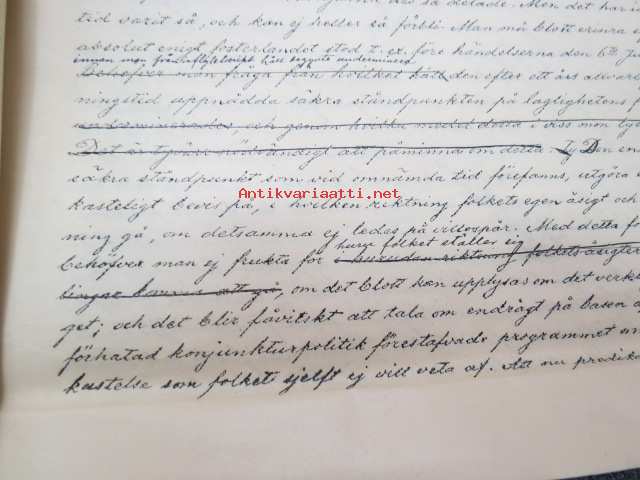 så delade. Men det har i
tid varit så, och kan ej heller så förbli. Man må blott erinra
absolut enigt fosterlandet stod t. ex. före händelserna den 6te Ju
innan man från inflytelserikt håll begynte underminera
Behöfver man fråga från hvilket håll den efter ett års allvar
ningstid uppnådda säkra ståndpunkten på laglighetens
underminerades, och genom hvilka medel detta i viss mon
Det är tyvärr nödvändigt att påminna om detta. Ty Den en
säkra ståndpunkt som vid omnämda tid förefanns, utgöra
kasteligt bevis på, i hvilken riktning folkets egen åsigt och
ning gå, om detsamma ej ledas på villospår. Med detta
huru folket ställer sig
behöfver man ej frukta för i hurudan riktning folkets åsigter
komma att gå, om det blott kan upplysas om det verk
get; och det blir fåvitskt att tala om endrägt på basen
förhatad konjunkturpolitik förestafvade programmet
kastelse som folket sjelft ej vill veta af. Att nu predika
Antikvariaatti.net